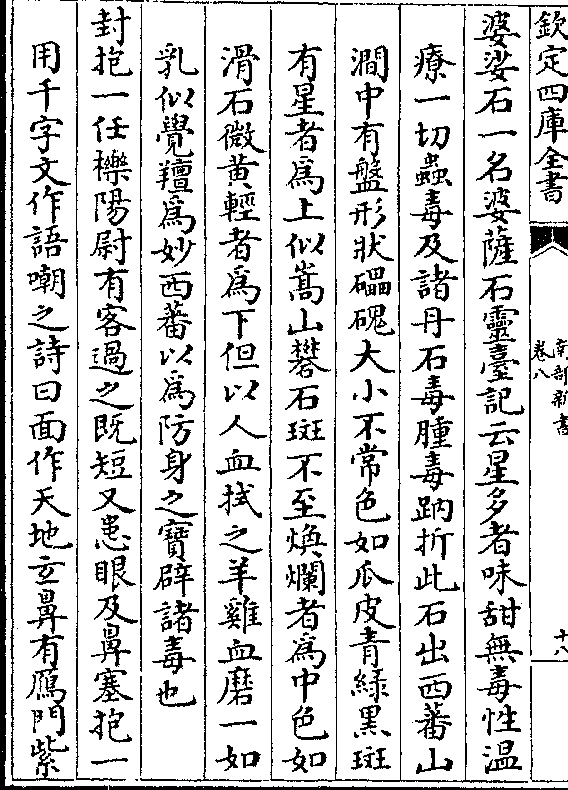 欽定四庫全書
南部新書
卷八
十八
婆娑石一名婆薩石靈臺記云星多者味甜無毒性溫
療一切蟲毒及諸丹石毒腫毒䟜折此石出西蕃山
澗中有盤形狀礧磈大小不常色如瓜皮青綠黑斑
有星者爲上似嵩山礬石斑不至煥爛者爲中色如
滑石微黃輕者爲下但以人血拭之羊雞血磨一如
乳似覺羶爲妙西蕃以爲防身之寶辟諸毒也
封抱一任櫟陽尉有客過之既短又患眼及鼻塞抱一
用千字文作語嘲之詩曰面作天地玄鼻有鴈門紫